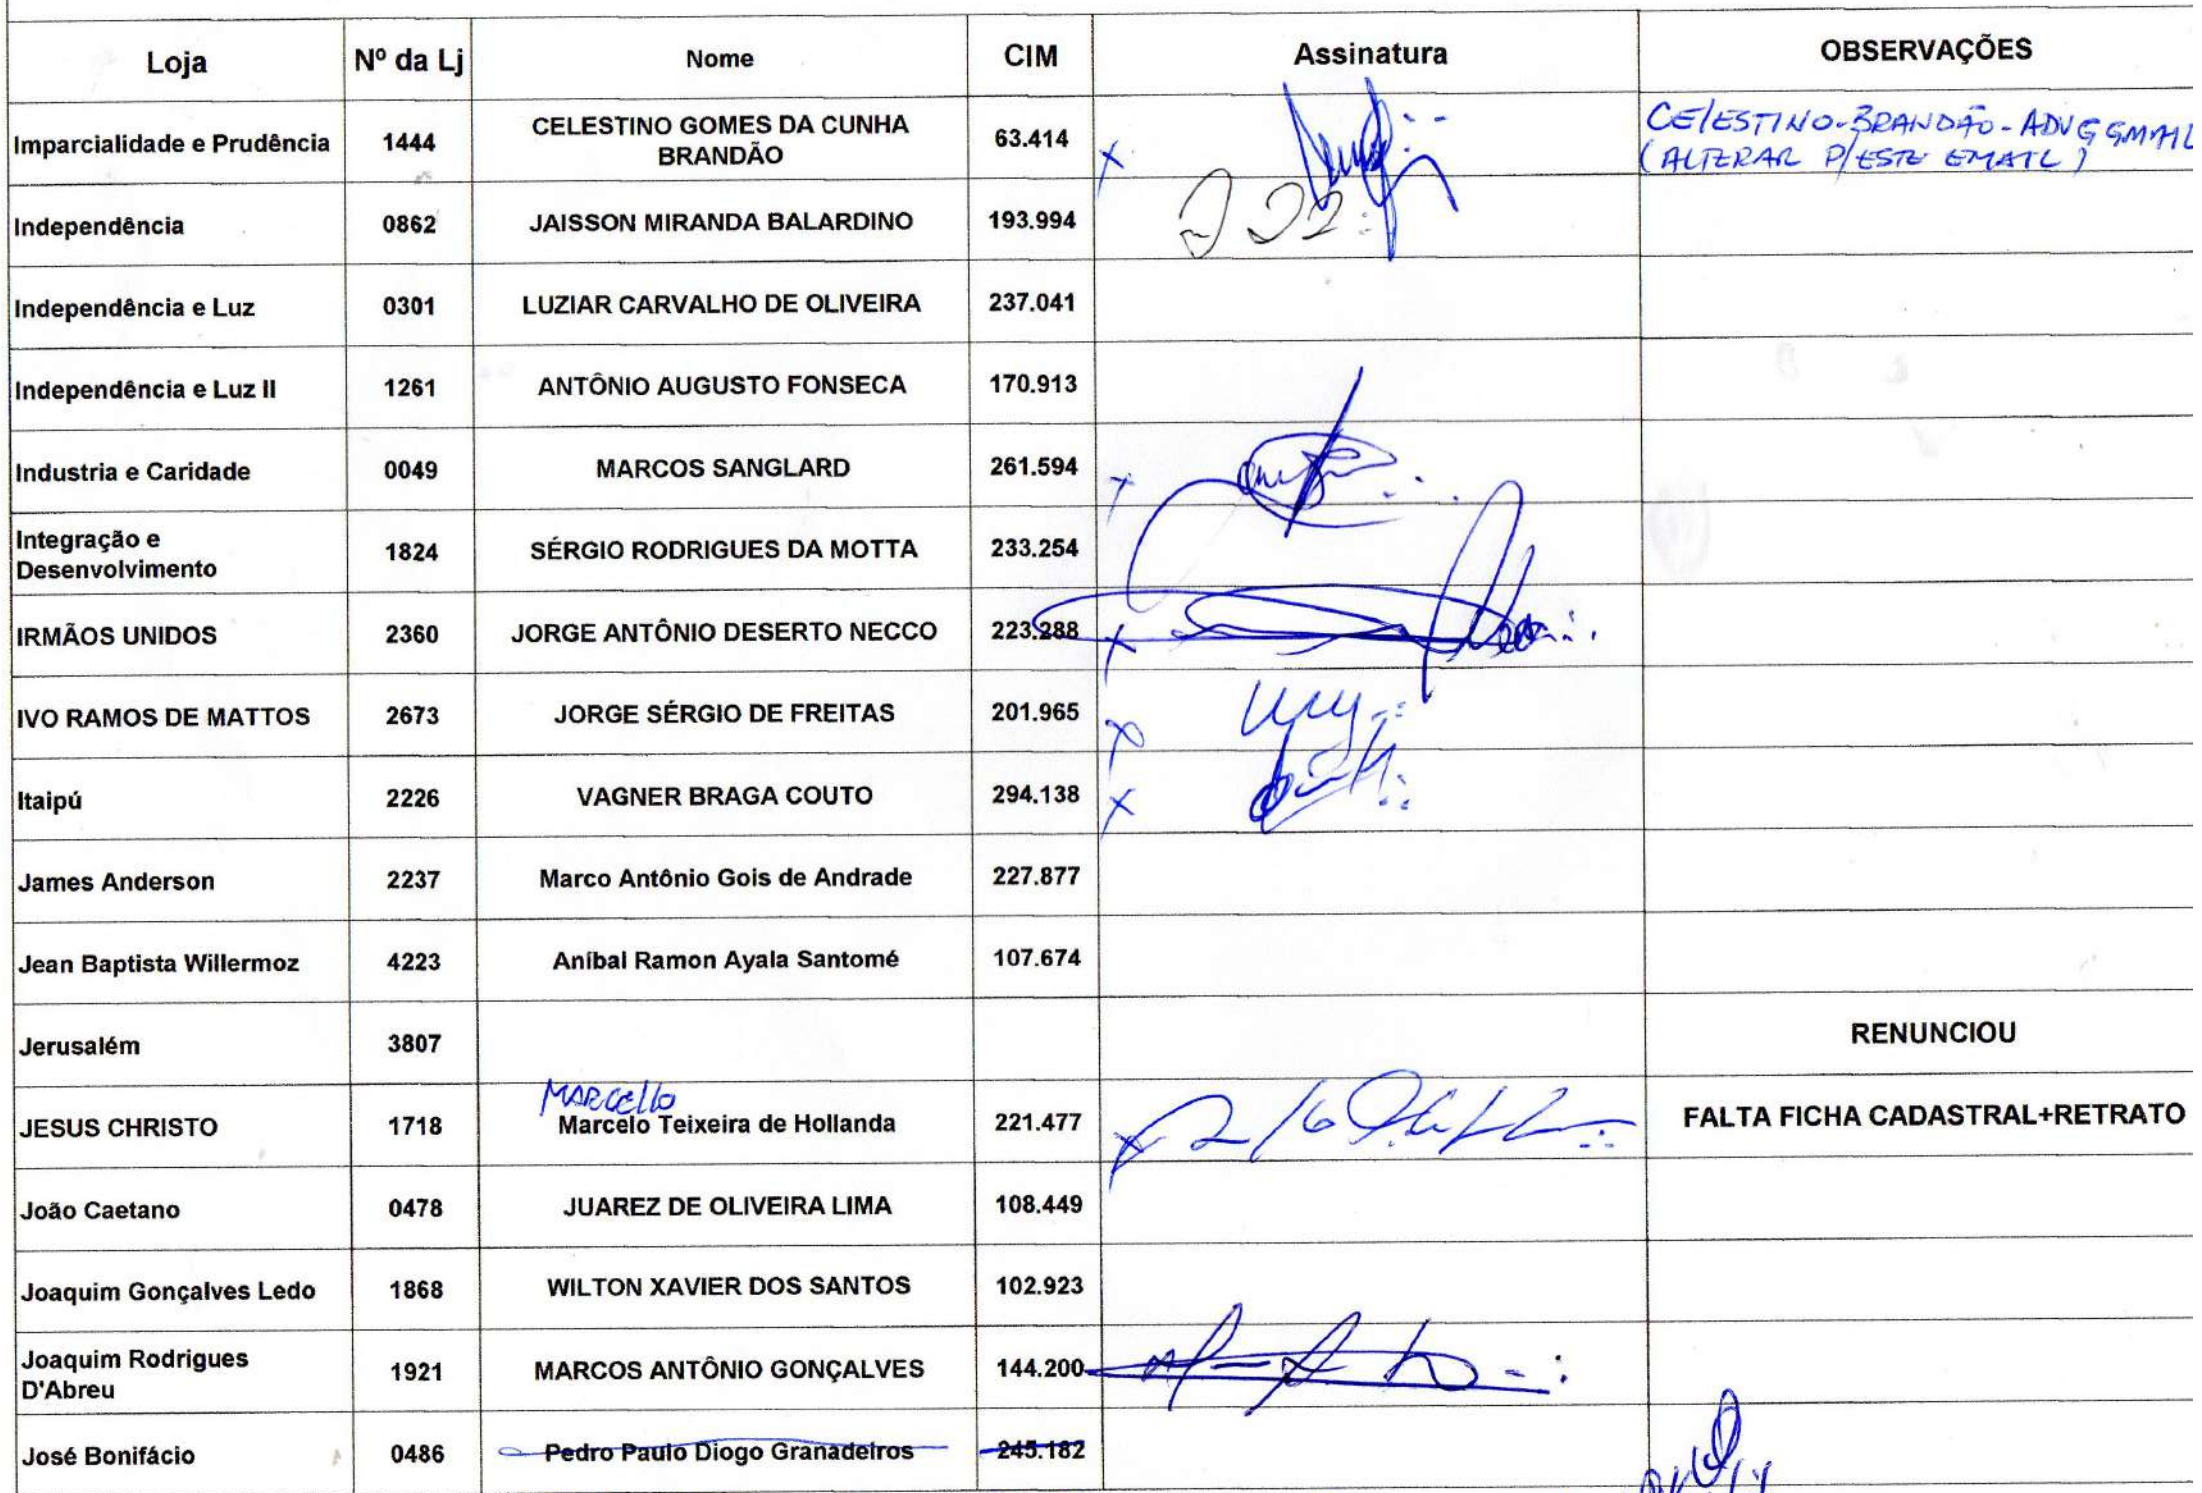 Loja Nº da Lj Nome CIM Assinatura OBSERVAÇÕES
Imparcialidade e Prudência 1444 CELESTINO GOMES DA CUNHA BRANDÃO 63.414 X CELESTINO-BRANDÃO-ADV GMAIL
(ALTERAR P/ESTE EMAIL)
Independência 0862 JAISSON MIRANDA BALARDINO 193.994
Independência e Luz 0301 LUZIAR CARVALHO DE OLIVEIRA 237.041
Independência e Luz II 1261 ANTÔNIO AUGUSTO FONSECA 170.913
Industria e Caridade 0049 MARCOS SANGLARD 261.594 X
Integração e Desenvolvimento 1824 SÉRGIO RODRIGUES DA MOTTA 233.254
IRMÃOS UNIDOS 2360 JORGE ANTÔNIO DESERTO NECCO 223.288 X
IVO RAMOS DE MATTOS 2673 JORGE SÉRGIO DE FREITAS 201.965 X
Itaipú 2226 VAGNER BRAGA COUTO 294.138 X
James Anderson 2237 Marco Antônio Gois de Andrade 227.877
Jean Baptista Willermoz 4223 Aníbal Ramon Ayala Santomé 107.674
Jerusalém 3807 RENUNCIOU
MARCELLO
JESUS CHRISTO 1718 Marcelo Teixeira de Hollanda 221.477 X FALTA FICHA CADASTRAL+RETRATO
João Caetano 0478 JUAREZ DE OLIVEIRA LIMA 108.449
Joaquim Gonçalves Ledo 1868 WILTON XAVIER DOS SANTOS 102.923
Joaquim Rodrigues D'Abreu 1921 MARCOS ANTÔNIO GONÇALVES 144.200
José Bonifácio 0486 Pedro Paulo Diogo Granadeiros 245.182